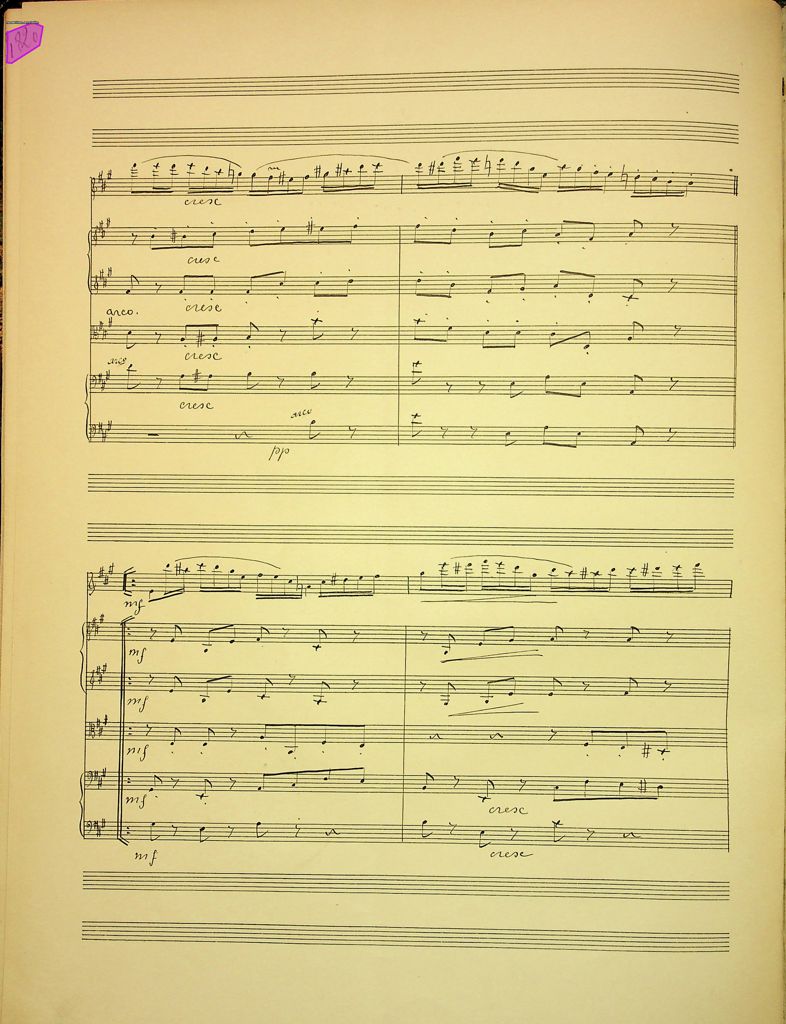 180
cresc
cresc
arco.
cresc
cresc
cresc
arco
pp
mf
mf
mf
mf
mf
cresc
mf
cresc